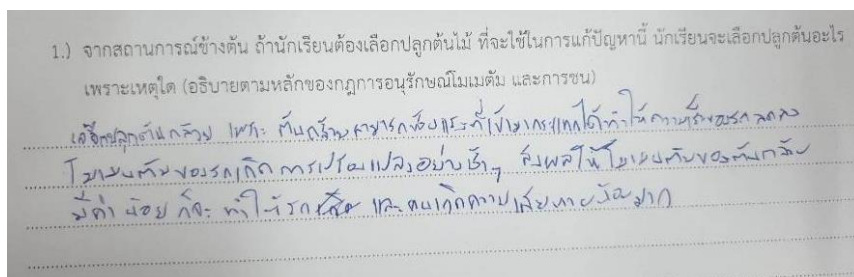 1.) จากสถานการณ์ข้างต้น ถ้านักเรียนต้องเลือกปลูกต้นไม้ ที่จะใช้ในการแก้ปัญหานี้ นักเรียนจะเลือกปลูกต้นอะไร
เพราะเหตุใด (อธิบายตามหลักของกฎการอนุรักษ์โมเมตัม และการชน)
เลือกปลูกต้นกล้วย เพราะ ต้นกล้วยสามารถซับแรงที่เข้ามากระแทกได้ทำให้ความเร็วของรถลดลง
โมเมนตัมของรถเกิดการเปลี่ยนแปลงอย่างช้าๆ ส่งผลให้โมเมนตัมของต้นกล้วย
มีค่าน้อย ก็จะทำให้รถ และคนเกิดความเสียหายน้อยมาก